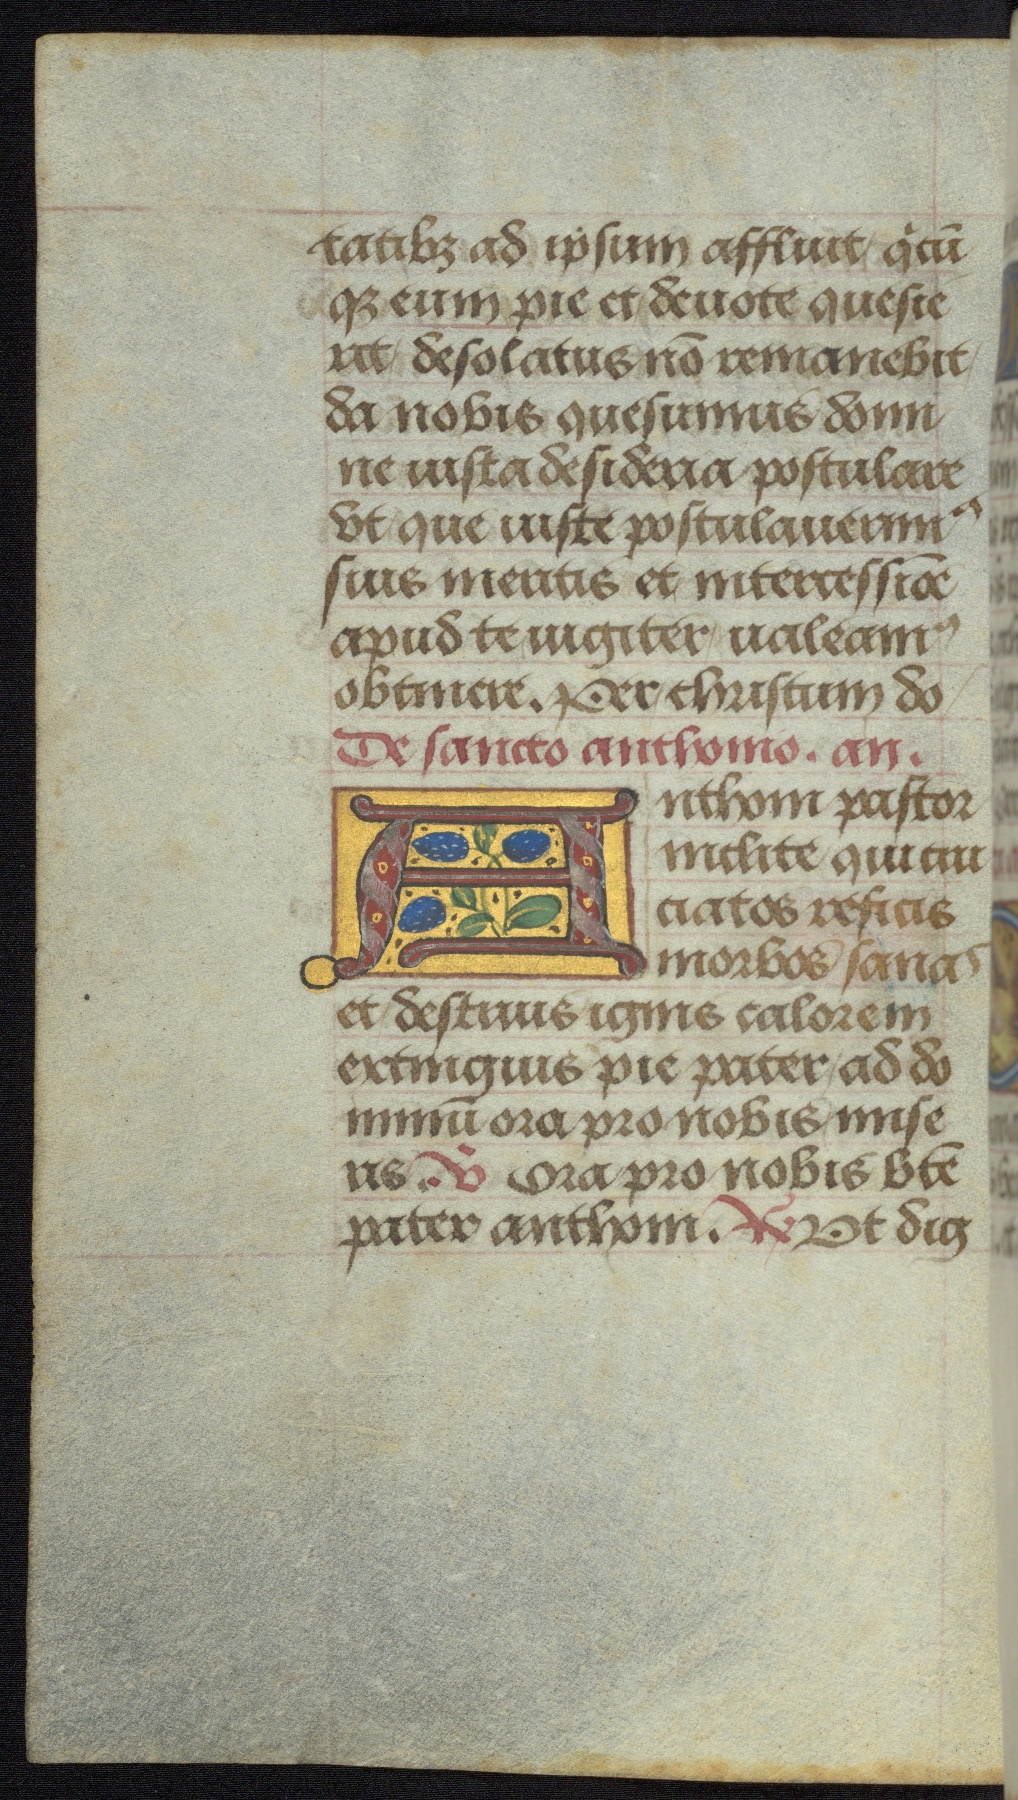 tatibꝫ ad ipsum affluit/ q̇cū
qꝫ eum pie et deuote quesie
rit/ desolatus nō remanebit/
da nobis quesumus domi
ne iusta desideria postulare
vt que iuste postulauerimꝰ
suis meritis et intercessiōe
apud te iugiter ualeamꝰ
obtinere. Per christum do
De sancto anthonio. an.
Anthoni pastor
inclite qui cru
ciatos reficis
morbos sanas
et destruis ignis calorem
extinguis pie pater/ ad do
minū ora pro nobis mise
ris. ℣ Ora pro nobis bt̄e
pater anthoni. ℟ Ut dig